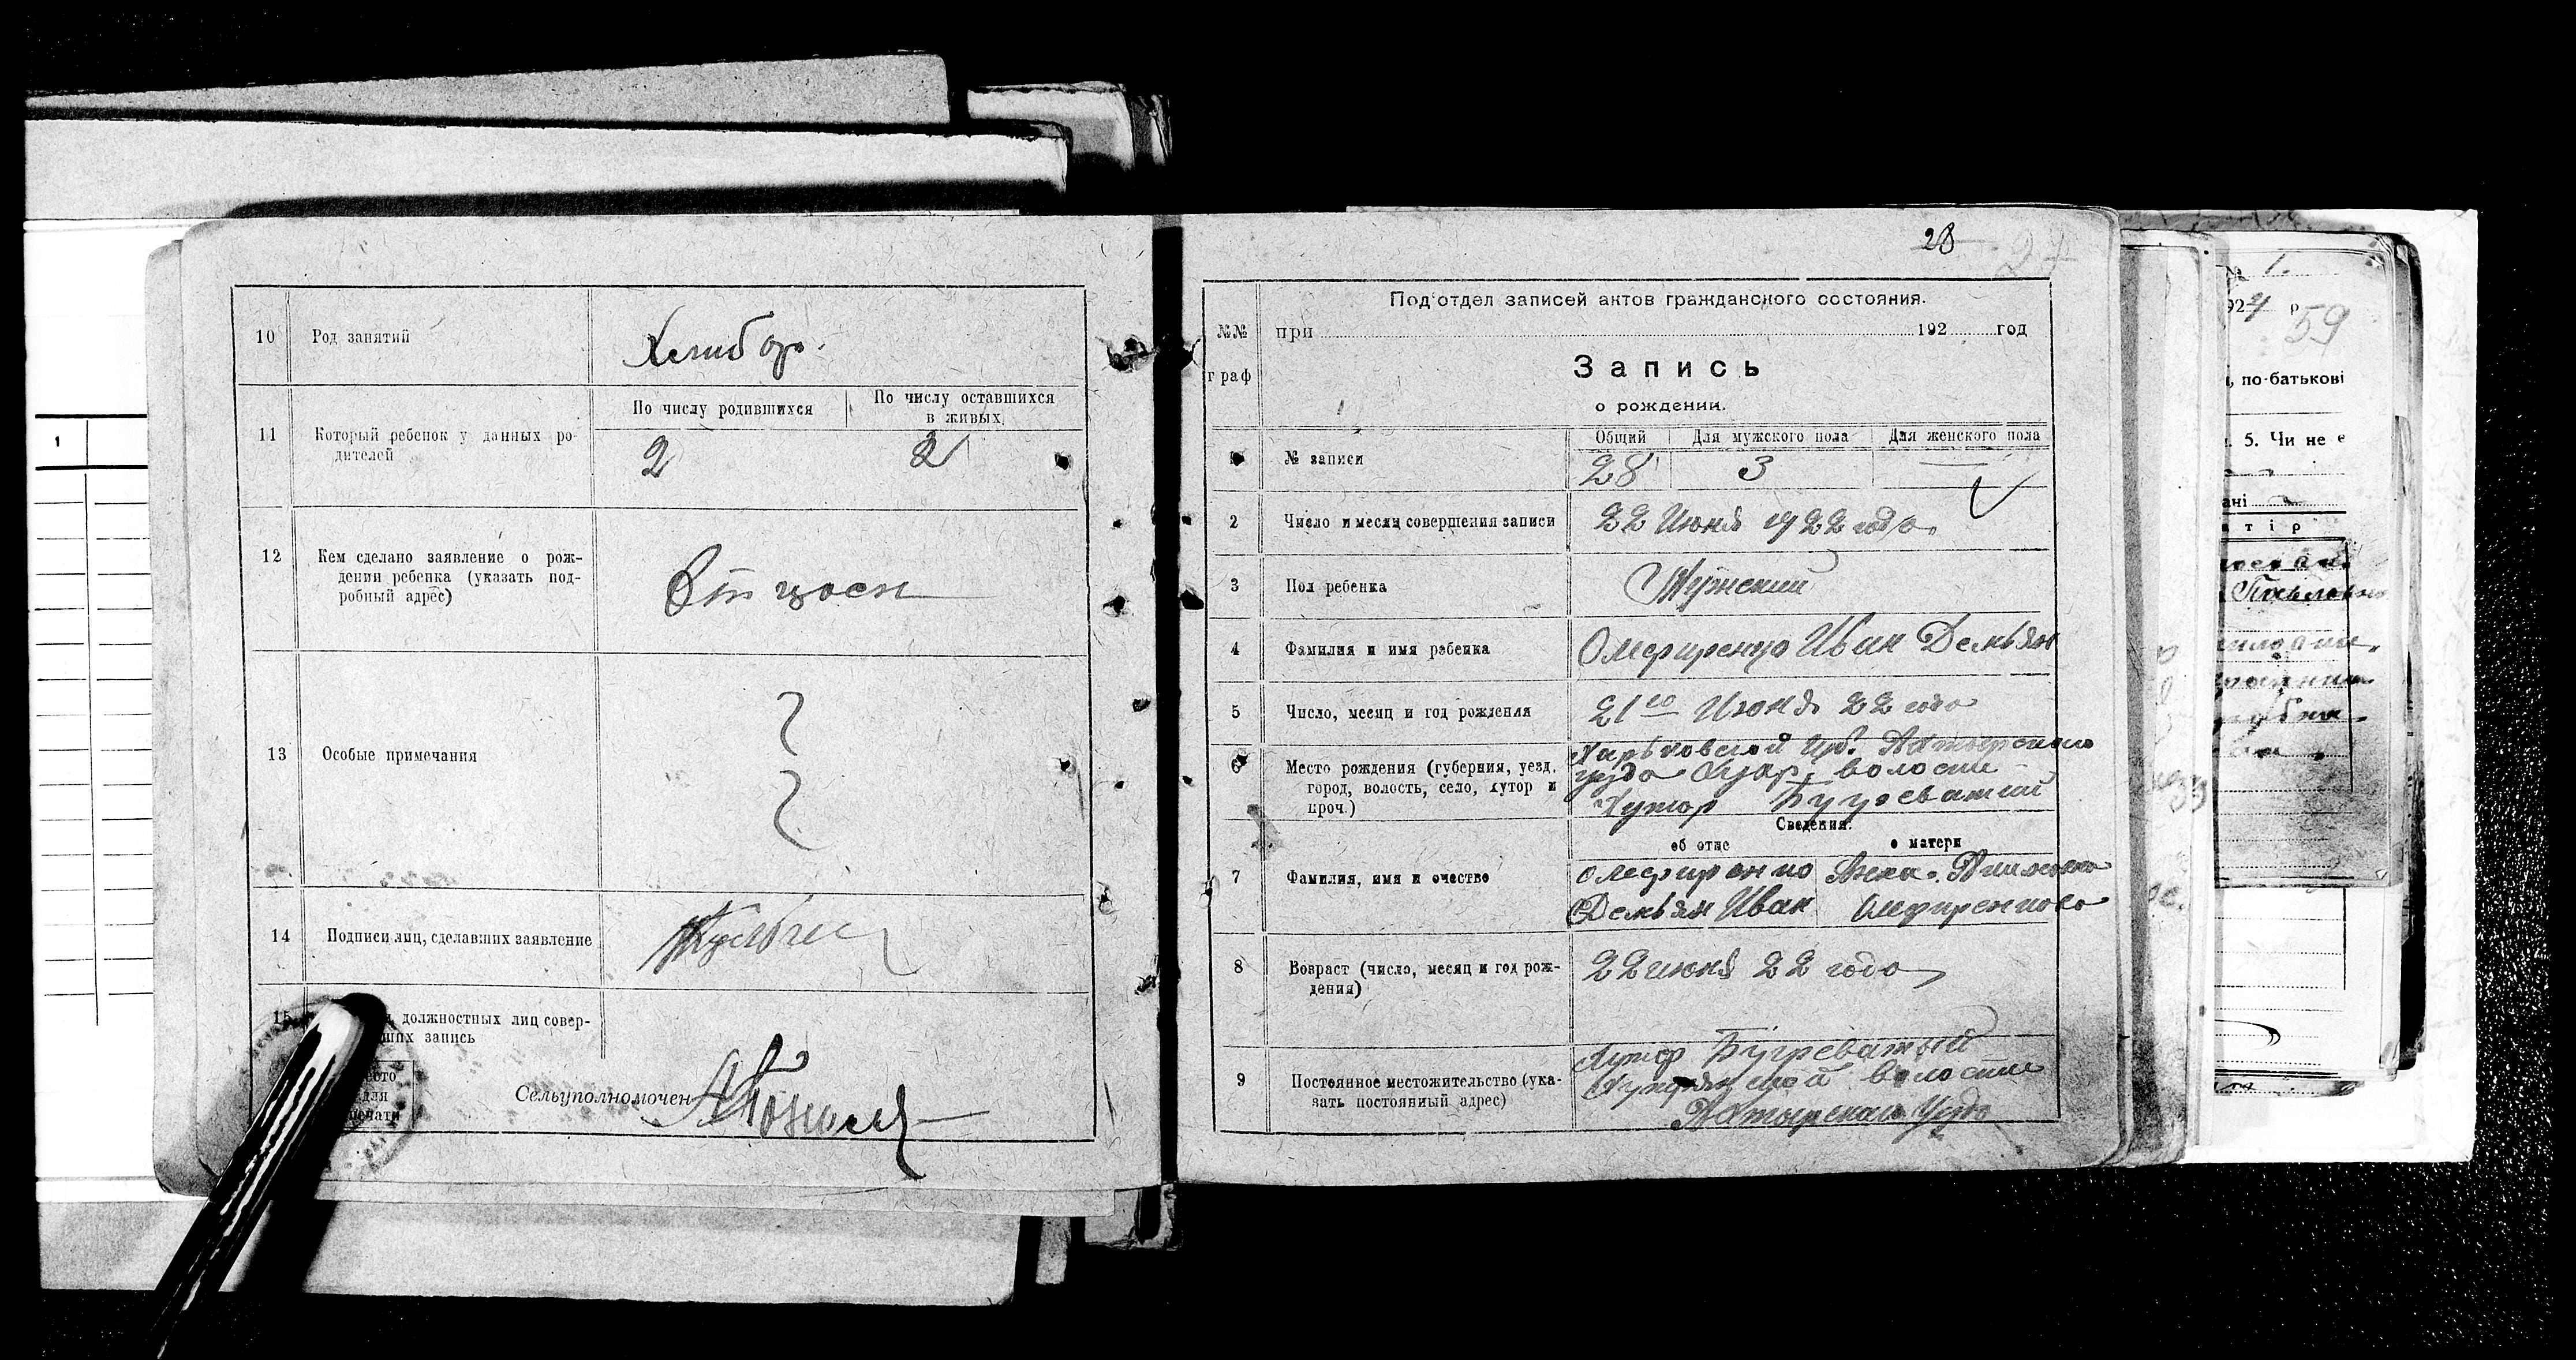 10 Род занятий Хлибор.
11 Который ребенок у данных ро-
дителей
По числу родившихся По числу оставшихся
в живых
2 2
12 Кем сделано заявление о рож-
дении ребенка (указать под-
робный адрес)
Отцоем
13 Особые примечания
14 Подписи лиц, сделавших заявление
15 должностных лиц совер-
ших запись
место
для
печати
Сельуполномочен
28 27
Под'отдел записей актов гражданского состояния.
№№ при 192 год
граф
Запись
о рождении.
Общий Для мужского пола Для женского пола
№ записи 28 3 —
2 Число и месяц совершения записи 22 Июня 1922 года
3 Пол ребенка Мужский
4 Фамилия и имя ребенка Омефиренко Иван Демьян
5 Число, месяц и год рождения 21го Июня 22 года
6 Место рождения (губерния, уезд,
город, волость, село, хутор и
проч.)
Харьковской Губ. Ахтырского
уезда волости
Хутор Бугреватий
Сведения:
об отце о матери
7 Фамилия, имя и очество
Омефиренко Анна
Демьян Иван Омефиренкова
8 Возраст (число, месяц и год рож-
дения)
22 июня 22 года
9 Постоянное местожительство (ука-
зать постоянный адрес)
Хутор Бугреватый
волости
Ахтырскаго Уезда
№ 1.
924 р
59
, по-батькові
5. Чи не є
ані
тір
1